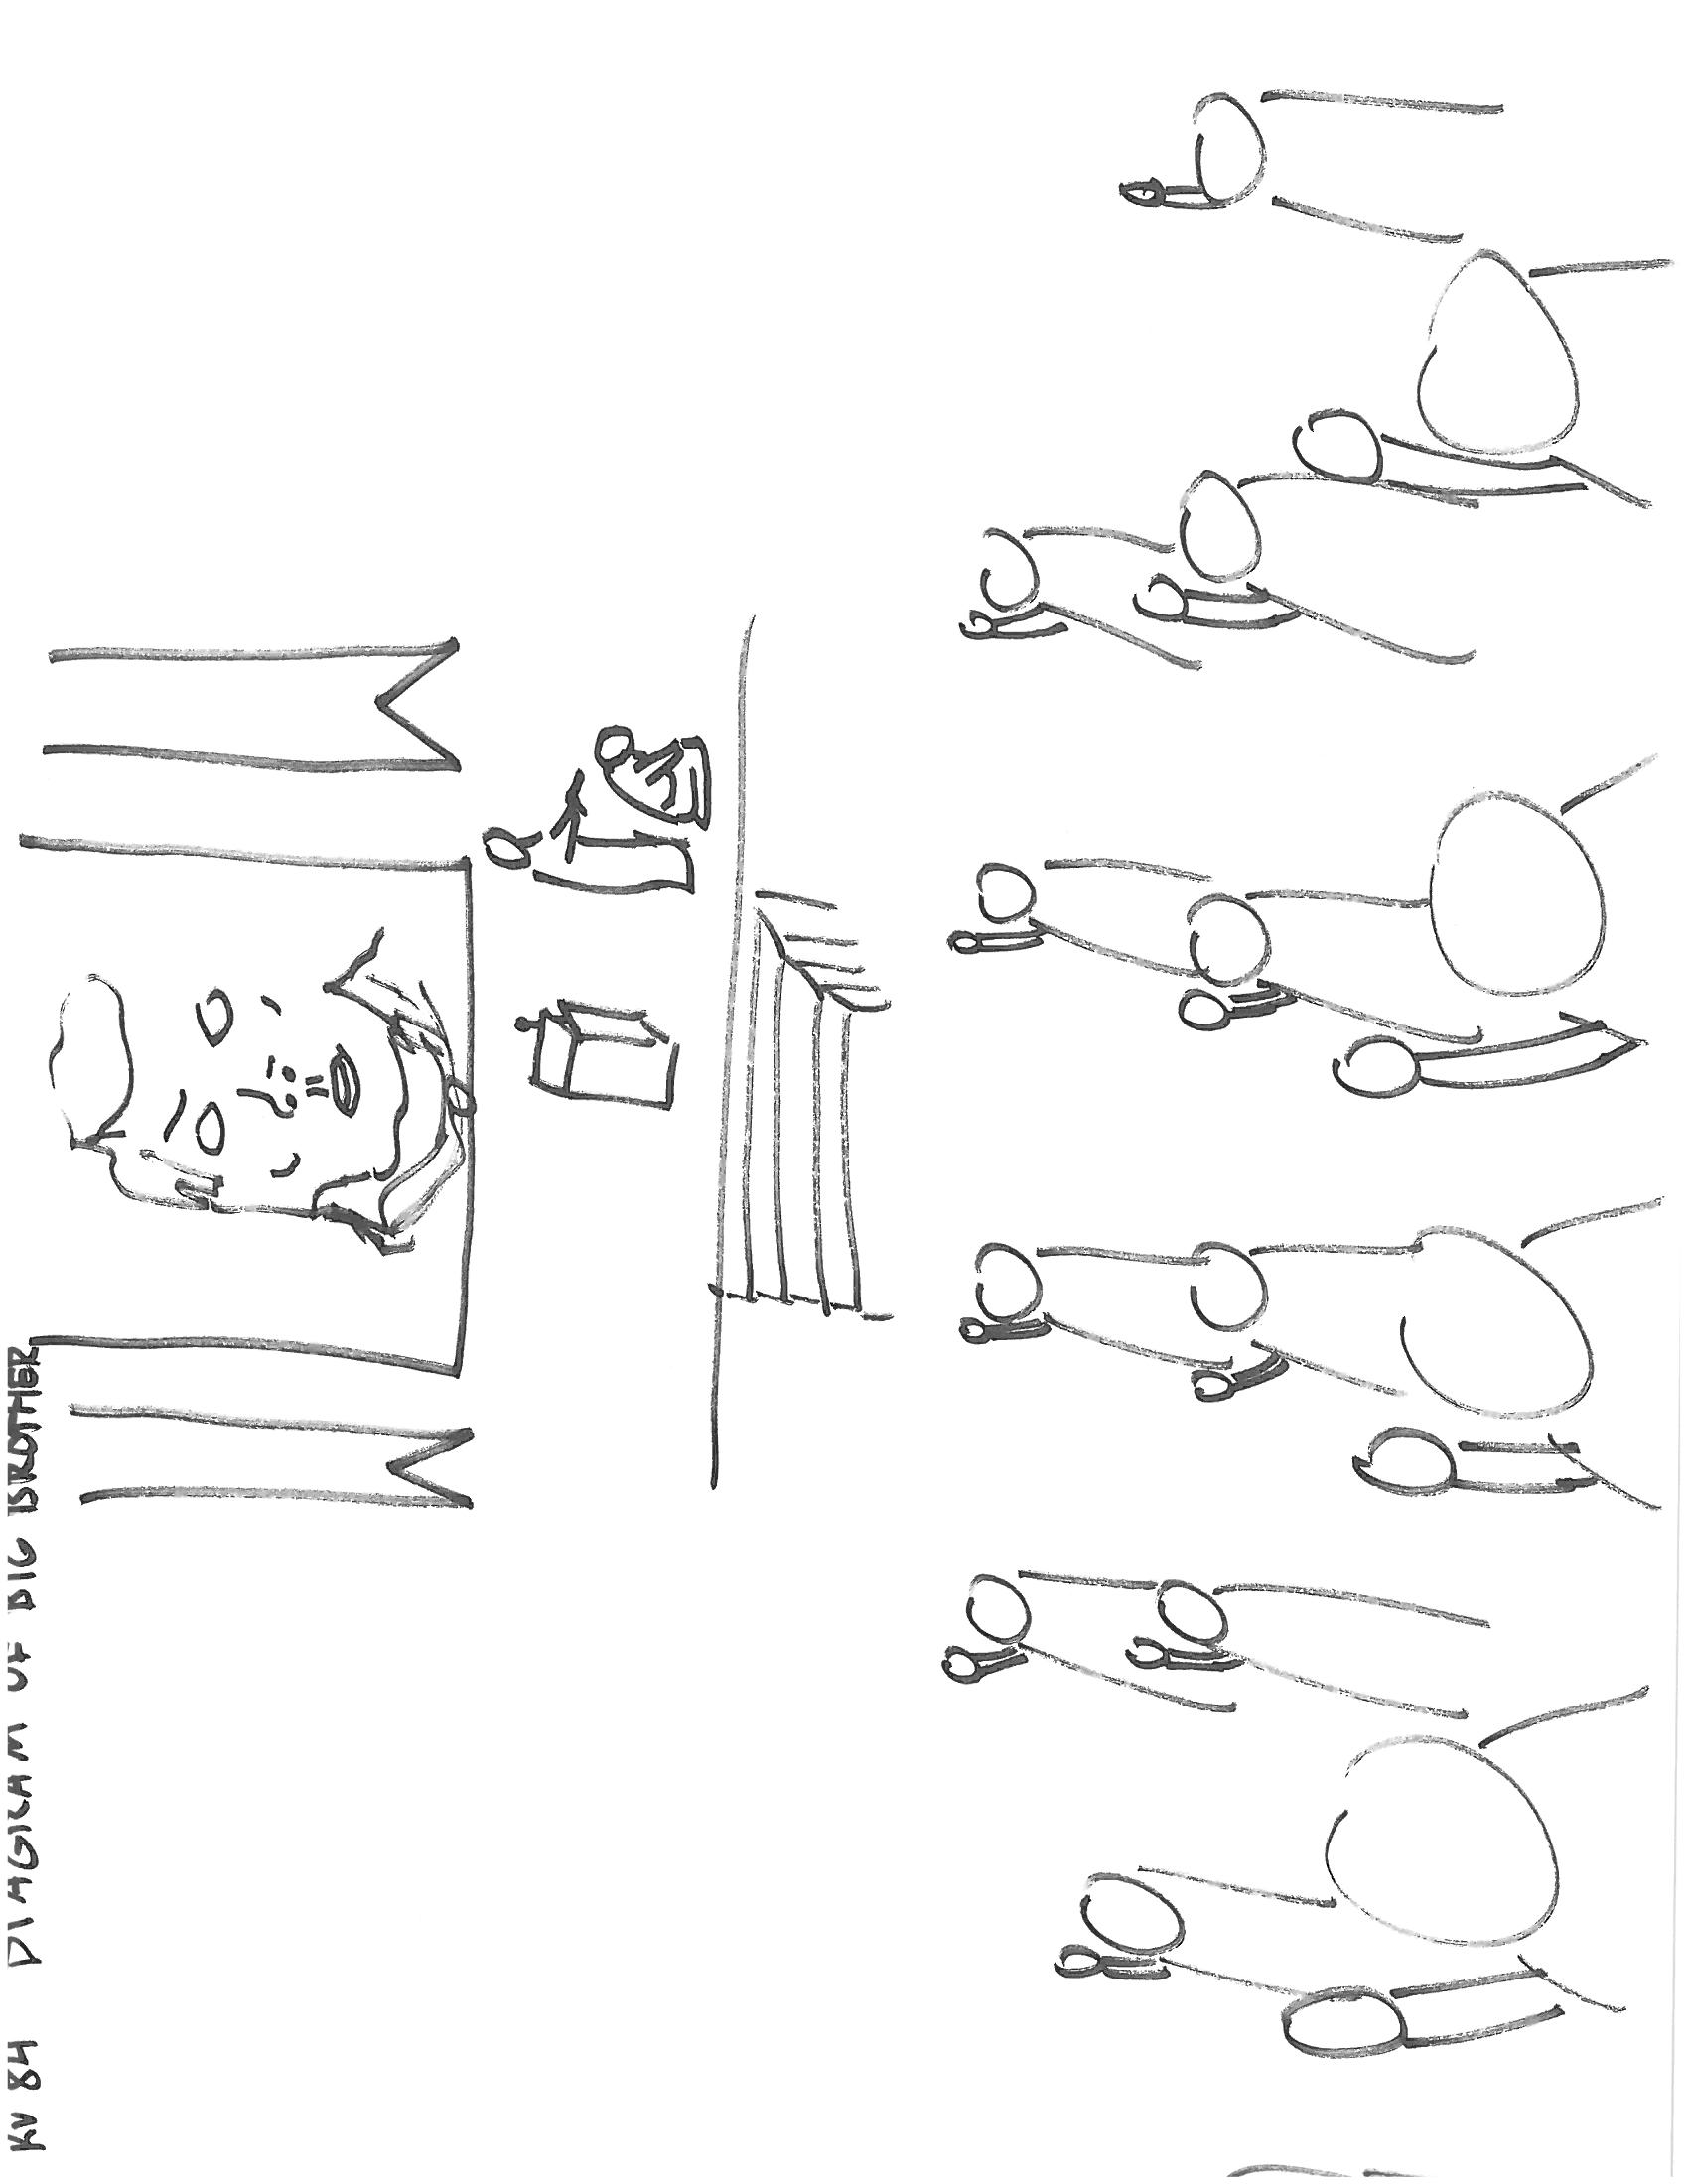 KV 84 DIAGRAM OF BIG BROTHER